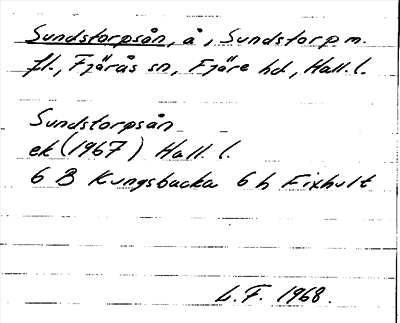 Sundstorpsån, å, Sundstorp m.
fl., Fjärås sn, Fjäre hd, Hall. l.
Sundstorpsån
ek (1967) Hall. l.
6 B Kungsbacka 6 h Fixhult
L.F. 1968.